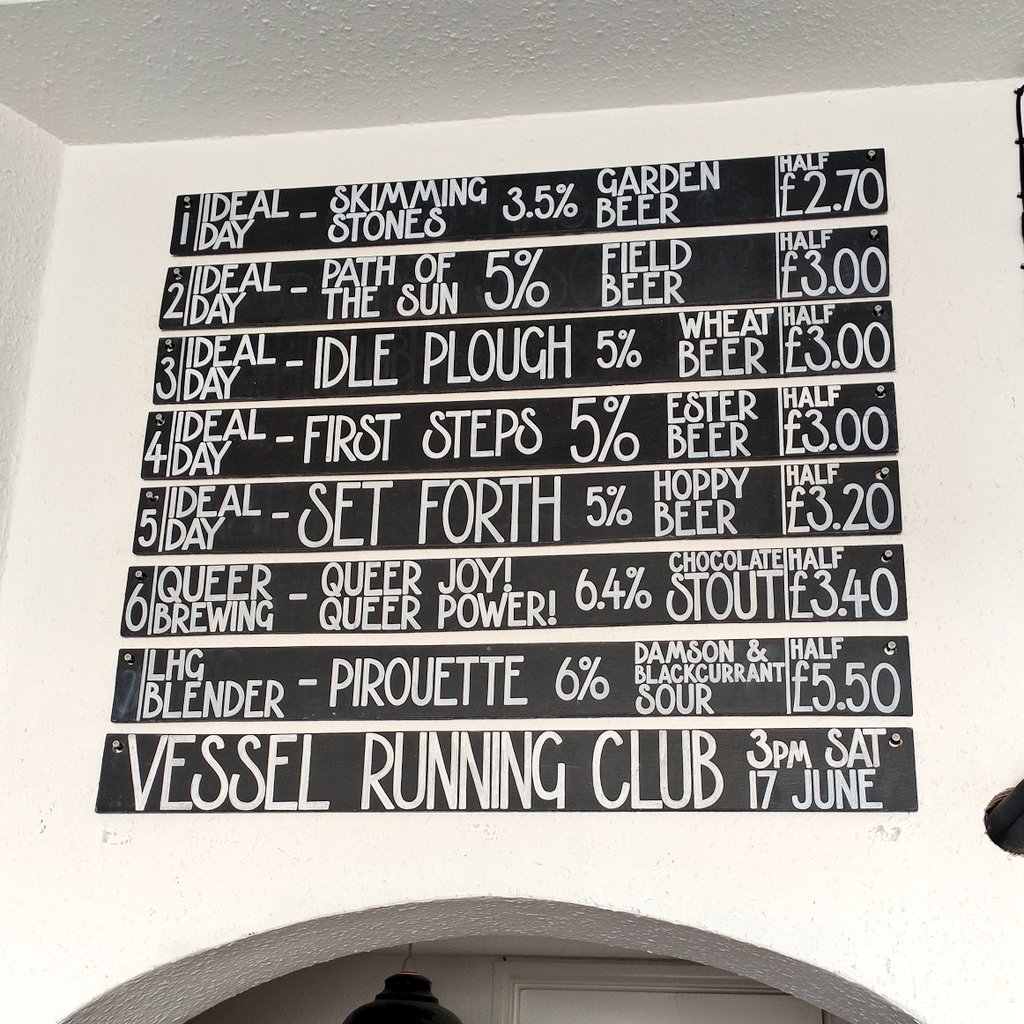 1 IDEAL DAY - SKIMMING STONES 3.5% GARDEN BEER HALF £2.70
2 IDEAL DAY - PATH OF THE SUN 5% FIELD BEER HALF £3.00
3 IDEAL DAY - IDLE PLOUGH 5% WHEAT BEER HALF £3.00
4 IDEAL DAY - FIRST STEPS 5% ESTER BEER HALF £3.00
5 IDEAL DAY - SET FORTH 5% HOPPY BEER HALF £3.20
6 QUEER BREWING - QUEER JOY! QUEER POWER! 6.4% CHOCOLATE STOUT HALF £3.40
LHG BLENDER - PIROUETTE 6% DAMSON & BLACKCURRANT SOUR HALF £5.50
VESSEL RUNNING CLUB 3PM SAT 17 JUNE